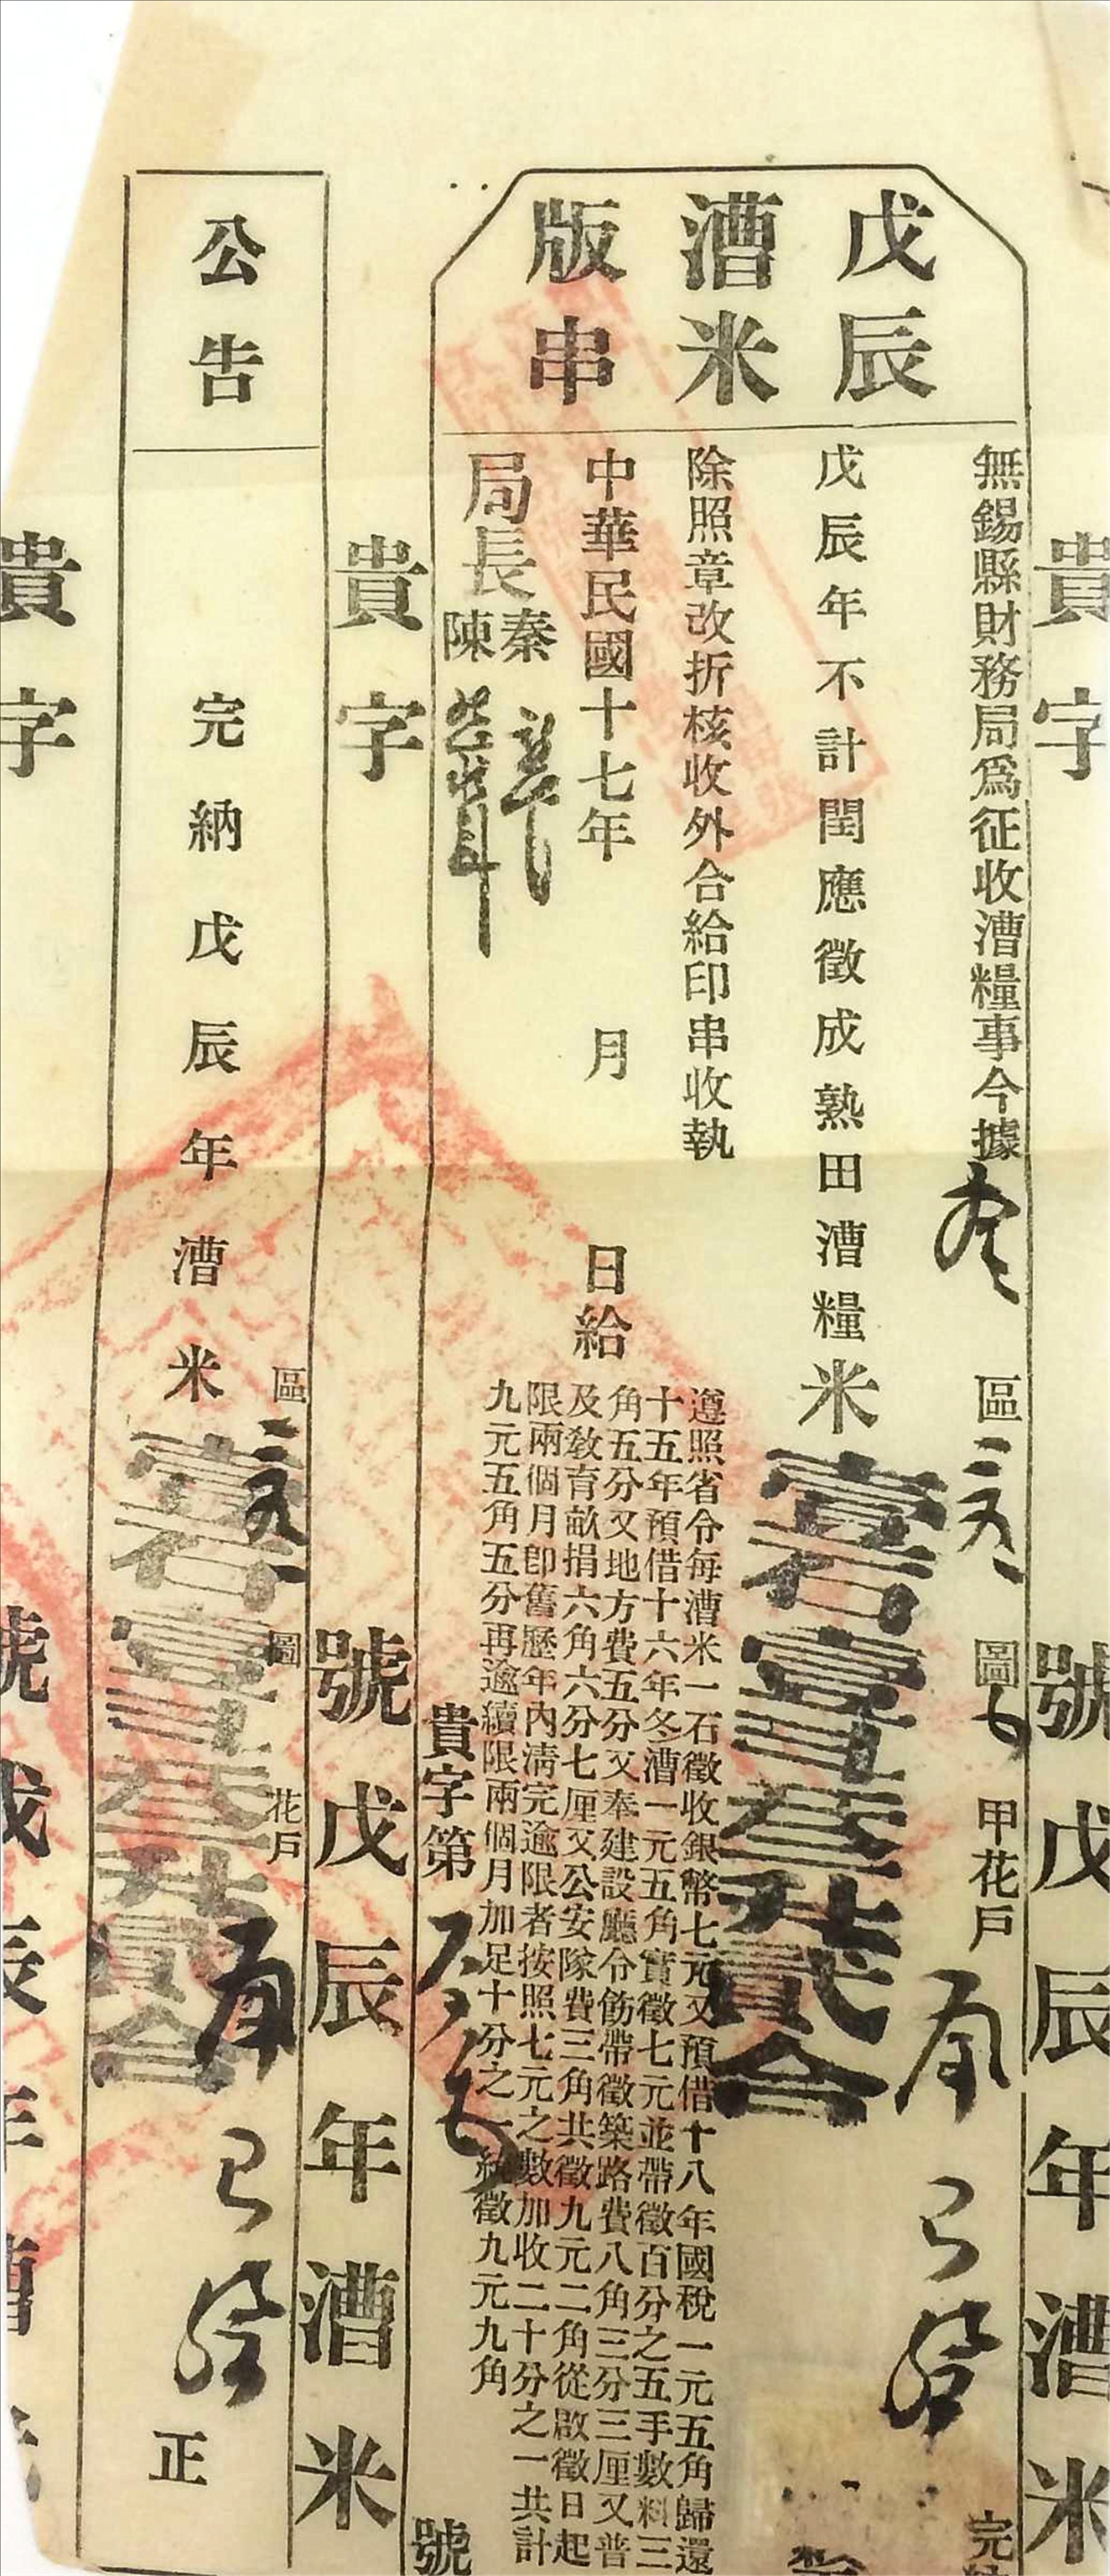 貴字 號戊辰年漕米
戊辰
漕米
版串
無錫縣財務局爲征收漕糧事今據 區 圖 甲花戶 完
戊辰年不計閏應徵成熟田漕糧米壹石壹斗叁升貳合
除照章改折核收外合給印串收執
中華民國十七年 月 日給
局長 秦 陳
遵照省令每漕米一石徵收銀幣七元又預借十八年國稅一元五角歸還
十五年預借十六年冬漕一元五角實徵七元並帶徵百分之五手數料三
角五分又地方費五分又奉建設廳令飭帶徵築路費八角三分三厘又普
及教育畝捐六角六分七厘又公安隊費三角共徵九元二角從啟徵日起
限兩個月卽舊歷年內清完逾限者按照七元之數加收二十分之一共計
九元五角五分再逾續限兩個月加足十分之一統徵九元九角
貴字第 號
貴字 號戊辰年漕米
公告
區 圖 花戶
完納戊辰年漕米壹石壹斗叁升貳合 正
貴字 號戊辰年漕